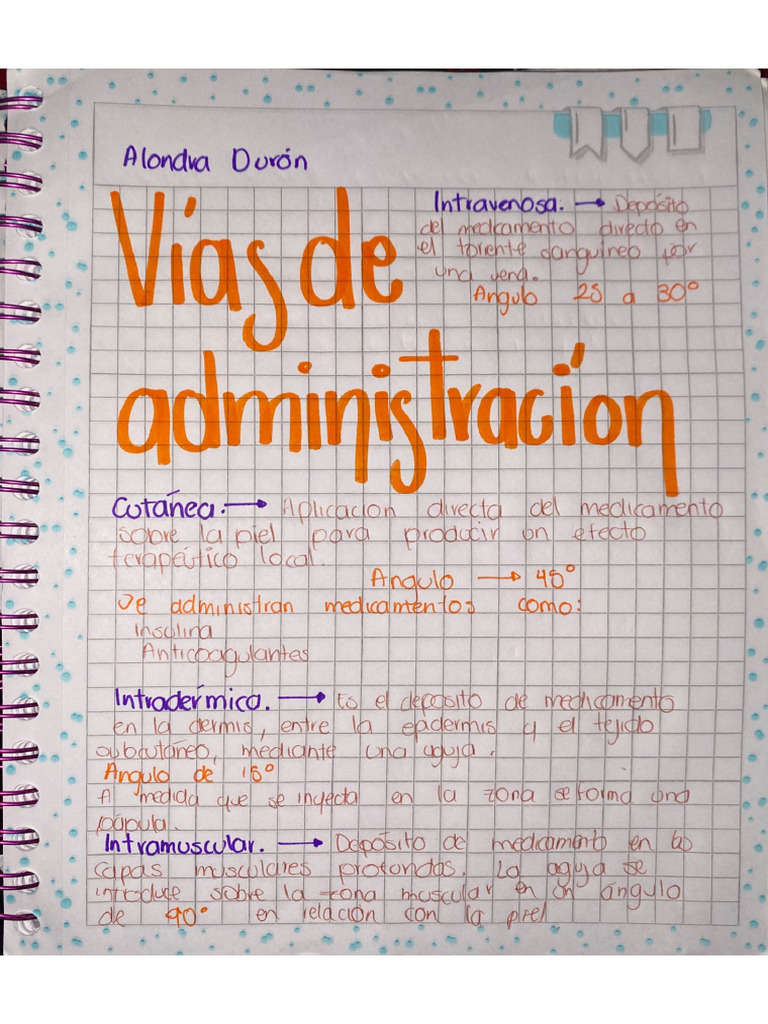 Alondra Durón
Vías de
administración
Intravenosa. → Depósito
del medicamento directo en
el torrente sanguíneo por
una vena.
Angulo 25 a 30°
Cutánea. → Aplicacion directa del medicamento
sobre la piel para producir un efecto
terapéutico local.
Angulo → 45°
Se administran medicamentos como:
Insulina
Anticoagulantes
Intradérmica. → Es el deposito de medicamento
en la dermis, entre la epidermis y el tejido
subcutáneo, mediante una aguja.
Angulo de 15°
A medida que se inyecta en la zona se forma una
pápula.
Intramuscular. → Depósito de medicamento en las
capas musculares profundas. La aguja se
introduce sobre la zona muscular en un ángulo
de 90° en relación con la piel